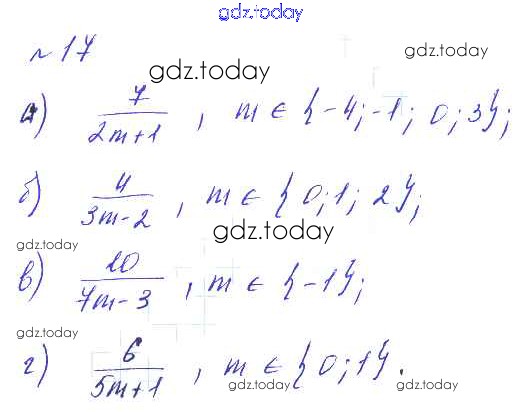 gdz.today
№17
gdz.today gdz.today
а) 7/(2m+1), m ∈ {-4; -1; 0; 3};
б) 4/(3m-2), m ∈ {0; 1; 2};
gdz.today gdz.today
в) 10/(7m-3), m ∈ {-1};
gdz.today gdz.today gdz.today
г) 6/(5m+1), m ∈ {0; 1}.
gdz.today gdz.today